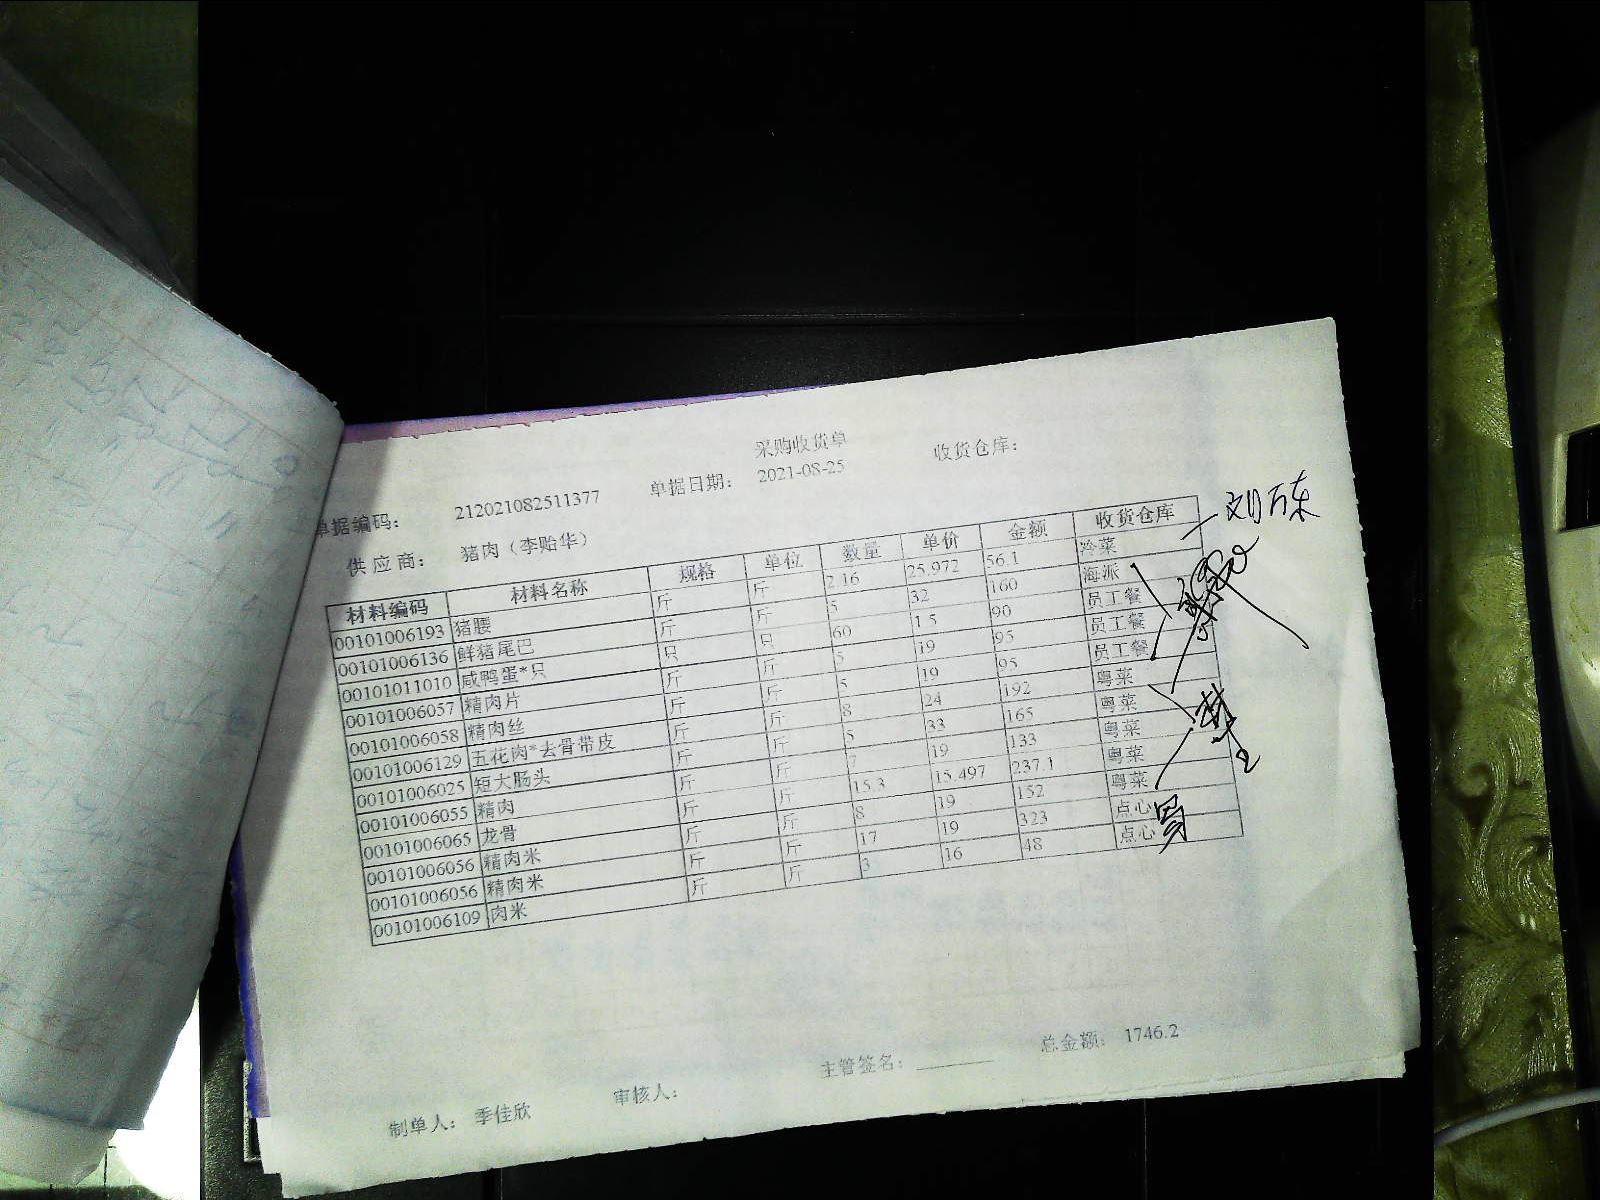 采购收货单
单据编码： 212021082511377 单据日期： 2021-08-25 收货仓库：
供应商： 猪肉（李贻华）
材料编码 材料名称 规格 单位 数量 单价 金额 收货仓库
00101006193 猪腰 斤 斤 2.16 25.972 56.1 冷菜
00101006136 鲜猪尾巴 斤 斤 5 32 160 海派
00101011010 咸鸭蛋*只 只 只 60 1.5 90 员工餐
00101006057 精肉片 斤 斤 5 19 95 员工餐
00101006058 精肉丝 斤 斤 5 19 95 员工餐
00101006129 五花肉*去骨带皮 斤 斤 8 24 192 粤菜
00101006025 短大肠头 斤 斤 5 33 165 粤菜
00101006055 精肉 斤 斤 7 19 133 粤菜
00101006065 龙骨 斤 斤 15.3 15.497 237.1 粤菜
00101006056 精肉米 斤 斤 8 19 152 粤菜
00101006056 精肉米 斤 斤 17 19 323 点心
00101006109 肉米 斤 斤 3 16 48 点心
刘万东
制单人： 季佳欣 审核人： 主管签名： 总金额： 1746.2